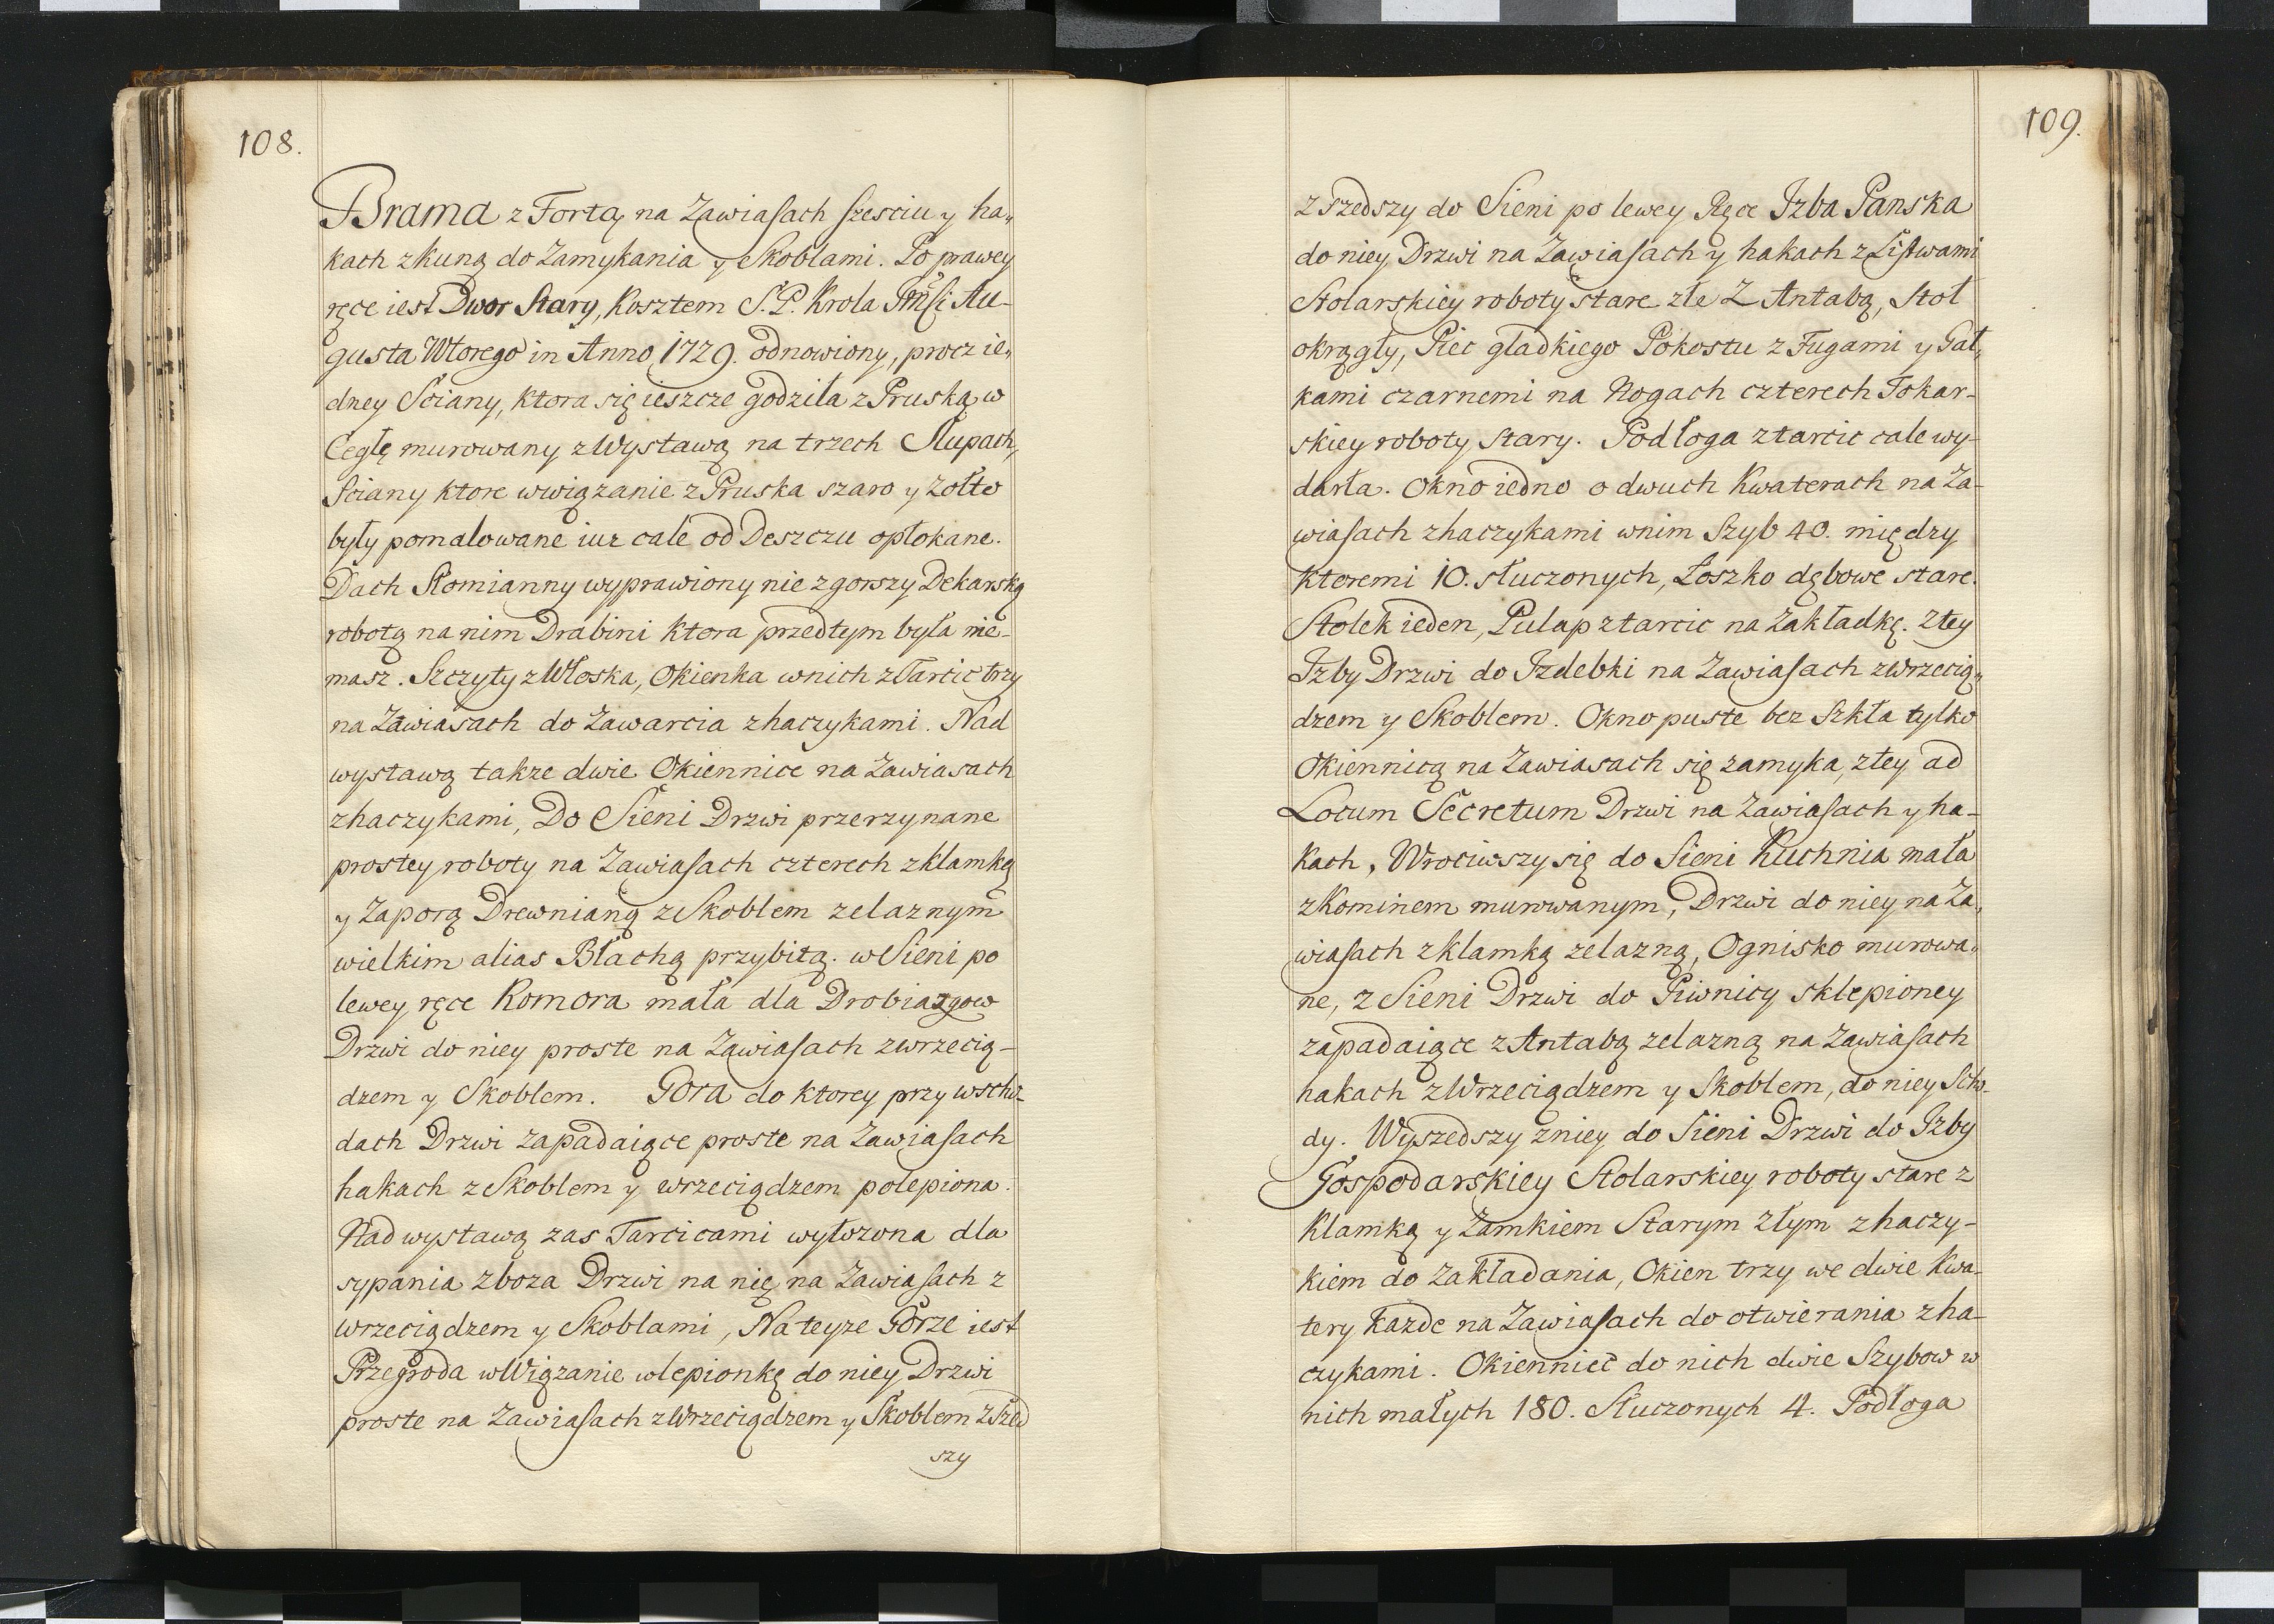 108.
Brama z Fortą na Zawiasach szesciu y ha„
kach z kuną do Zamykania y Skoblami. Po prawey
ręce iest Dwor Stary, Kosztem S.P. Krola Jmsći Au-
gusta Wtorego in Anno 1729. odnowiony, procz ie„
dney Sciany, ktora się ieszcze godziła z Pruska w
Cegłę murowany z Wystawą na trzech Słupach,
Sciany ktore w wiązanie z Pruska szaro y żołto
były pomalowane iuz cale od Deszczu opłokane.
Dach Słomianny wyprawiony nie zgorszy Dekarską
robotą na nim Drabini ktora przedtym była nie-
masz. Szczyty z Włoska, Okienka w nich z Tarcic trzy
na Zawiasach do Zawarcia z haczykami. Nad
wystawą takze dwie Okiennice na Zawiasach
z haczykami, Do Sieni Drzwi przerzynane
prostey roboty na Zawiasach czterech z klamką
y Zaporą Drewnianą z Skoblem zelaznym
wielkim alias Blachą przybitą. w Sieni po
lewey ręce Komora mała dla Drobiazgow
Drzwi do niey proste na Zawiasach z wrzecią-
dzem y Skoblem. Gora do ktorey przy wscho-
dach Drzwi zapadaiące proste na Zawiasach
hakach z Skoblem y wrzeciądzem polepiona.
Nad wystawą zas Tarcicami wyłozona dla
sypania zboza Drzwi na nię na Zawiasach z
wrzeciądzem y Skoblami, Na teyze Gorze iest
Przegroda w Wiązanie w lepionkę do niey Drzwi
proste na Zawiasach z Wrzeciądzem y Skoblem Zszed
szy
109.
Zszedszy do Sieni po lewey Ręce Izba Panska
do niey Drzwi na Zawiasach y hakach z Listwami
Stolarskiey roboty stare złe Z Antabą, Stoł
okrągły, Piec gladkiego Pokostu z Fugami y Gał„
kami czarnemi na Nogach czterech Tokar-
skiey roboty Stary. Podłoga z tarcic cale wy-
darta. Okno iedno o dwuch Kwaterach na Za-
wiasach z haczykami w nim Szyb 40. między
ktoremi 10. słuczonych, Łoszko dębowe stare.
Stolek ieden, Pulap z tarcic na Zakładkę. Z tey
Izby Drzwi do Izdebki na Zawiasach z wrzecią„
dzem y Skoblem. Okno puste bez Szkła tylko
Okiennicą na Zawiasach się zamyka, z tey ad
Locum Secretum Drzwi na Zawiasach y ha-
kach, Wrociwszy się do Sieni Kuchnia mała
z Kominem murowanym, Drzwi do niey na Za„
wiasach z klamką zelazną, Ognisko murowa„
ne, z Sieni Drzwi do Piwnicy sklepioney
zapadaiące z Antabą zelazną na Zawiasach
hakach z Wrzeciądzem y Skoblem, do niey Scho-
dy. Wyszedszy z niey do Sieni Drzwi do Izby
Gospodarskiey Stolarskiey roboty stare z
Klamką y Zamkiem Starym złym z haczy-
kiem do Zakładania, Okien trzy we dwie Kwa-
tery Kazde na Zawiasach do otwierania z ha-
czykami. Okiennicc do nich dwie Szybow w
nich małych 180. Słuczonych 4. Podłoga